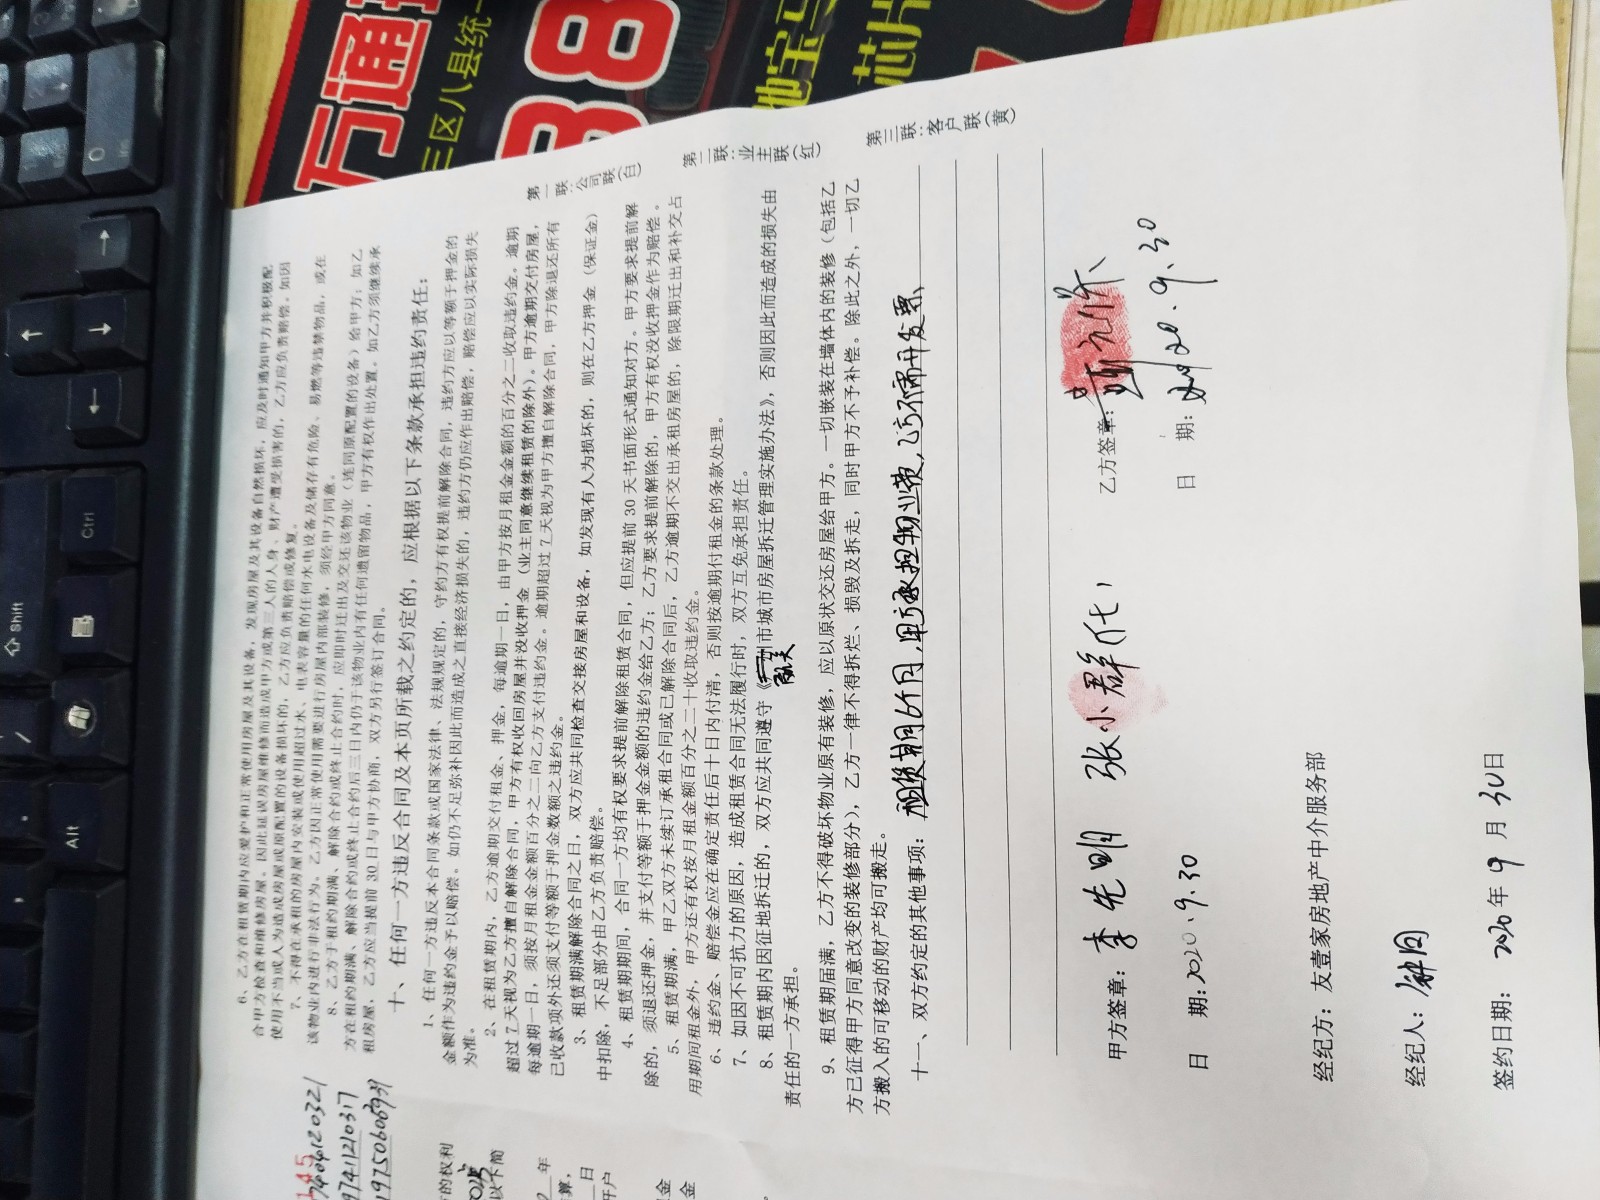 6、乙方在租赁期内应爱护和正常使用房屋及其设备，发现房屋及其设备自然损坏，应及时通知甲方并积极配
合甲方检查和维修房屋。因此延误房屋维修而造成甲方或第三人的人身、财产遭受损害的，乙方应负责赔偿。如因
使用不当或人为造成房屋或原配置的设备损坏的，乙方应负责赔偿或修复。
7、不得在承租的房屋内安装或使用超过水、电表容量的任何水电设备及储存有危险、易燃等违禁物品，或在
该物业内进行非法行为。乙方因正常使用需要进行房屋内部装修，须经甲方同意。
8、乙方于租约期满、解除合约或终止合约时，应即时迁出及交还该物业（连同原配置的设备）给甲方；如乙
方在租约期满、解除合约或终止合约后三日内仍于该物业内有任何遗留物品，甲方有权作出处置。如乙方须继续承
租房屋，乙方应当提前 30 日与甲方协商，双方另行签订合同。
十、任何一方违反合同及本页所载之约定的，应根据以下条款承担违约责任：
1、任何一方违反本合同条款或国家法律、法规规定的，守约方有权提前解除合同，违约方应以等额于押金的
金额作为违约金予以赔偿。如仍不足弥补因此而造成之直接经济损失的，违约方仍应作出赔偿，赔偿应以实际损失
为准。
2、在租赁期内，乙方逾期交付租金、押金，每逾期一日，由甲方按月租金金额的百分之二收取违约金。逾期
超过 7 天视为乙方擅自解除合同，甲方有权收回房屋并没收押金（业主同意继续租赁的除外）。甲方逾期交付房屋，
每逾期一日，须按月租金金额百分之二向乙方支付违约金。逾期超过 7 天视为甲方擅自解除合同，甲方除退还所有
已收款项外还须支付等额于押金数额之违约金。
3、租赁期满解除合同之日，双方应共同检查交接房屋和设备，如发现有人为损坏的，则在乙方押金（保证金）
中扣除，不足部分由乙方负责赔偿。
4、租赁期期间，合同一方均有权要求提前解除租赁合同，但应提前 30 天书面形式通知对方。甲方要求提前解
除的，须退还押金，并支付等额于押金金额的违约金给乙方；乙方要求提前解除的，甲方有权没收押金作为赔偿。
5、租赁期满，甲乙双方未续订承租合同或已解除合同后，乙方逾期不交出承租房屋的，除限期迁出和补交占
用期间租金外，甲方还有权按月租金额百分之二十收取违约金。
6、违约金、赔偿金应在确定责任后十日内付清，否则按逾期付租金的条款处理。
7、如因不可抗力的原因，造成租赁合同无法履行时，双方互免承担责任。
8、租赁期内因征地拆迁的，双方应共同遵守《广州市城市房屋拆迁管理实施办法》，否则因此而造成的损失由
责任的一方承担。
9、租赁期届满，乙方不得破坏物业原有装修，应以原状交还房屋给甲方。一切嵌装在墙体内的装修（包括乙
方已征得甲方同意改变的装修部分），乙方一律不得拆烂、损毁及拆走，同时甲方不予补偿。除此之外，一切乙
方搬入的可移动的财产均可搬走。
十一、双方约定的其他事项：租赁期6个月，甲方承担物业费，乙方不需开发票、
甲方签章：李先明 张小群代
乙方签章：
日 期：2020.9.30
日 期：2020.9.30
经纪方：友壹家房地产中介服务部
经纪人：
签约日期：2020年9月30日
第一联：公司联(白)
第二联：业主联(红)
第三联：客户联(黄)
万通
三区八县统一
38
芯片
Shift
Ctrl
Alt